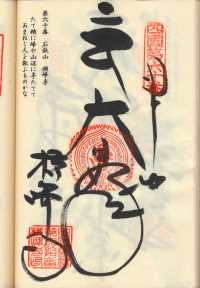 四國第六十番
大日如来
横峰寺
第六十番　石鈇山　横峰寺
たて横に峰や山辺に寺たてて
あまねく人を救ふものかな